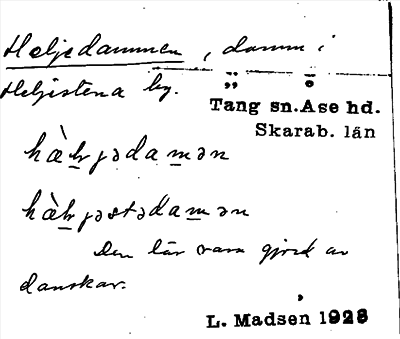 Heljedammen, damm i
Heljestena by.
Tang sn. Ase hd.
Skarab. län
hæ̀ljədamən
hæ̀ljəstədamən
Den lär vara gjord av
danskar.
L. Madsen 1928